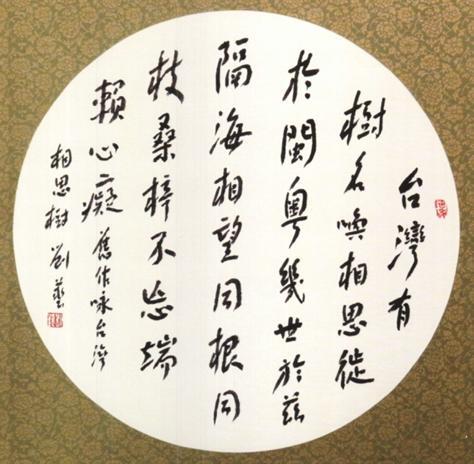 台灣有
樹名喚相思徙
於閩粵幾世於茲
隔海相望同根同
枝桑梓不忘端
賴心癡 舊作咏台灣
相思樹 劉藝